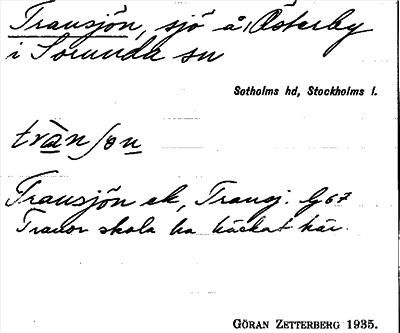 Transjön, sjö å Österby
i Sorunda sn
Sotholms hd, Stockholms l.
tràn ſo̲n̲
Transjön ek, Transj. G67
Tranor skola ha häckat här.
GÖRAN ZETTERBERG 1935.